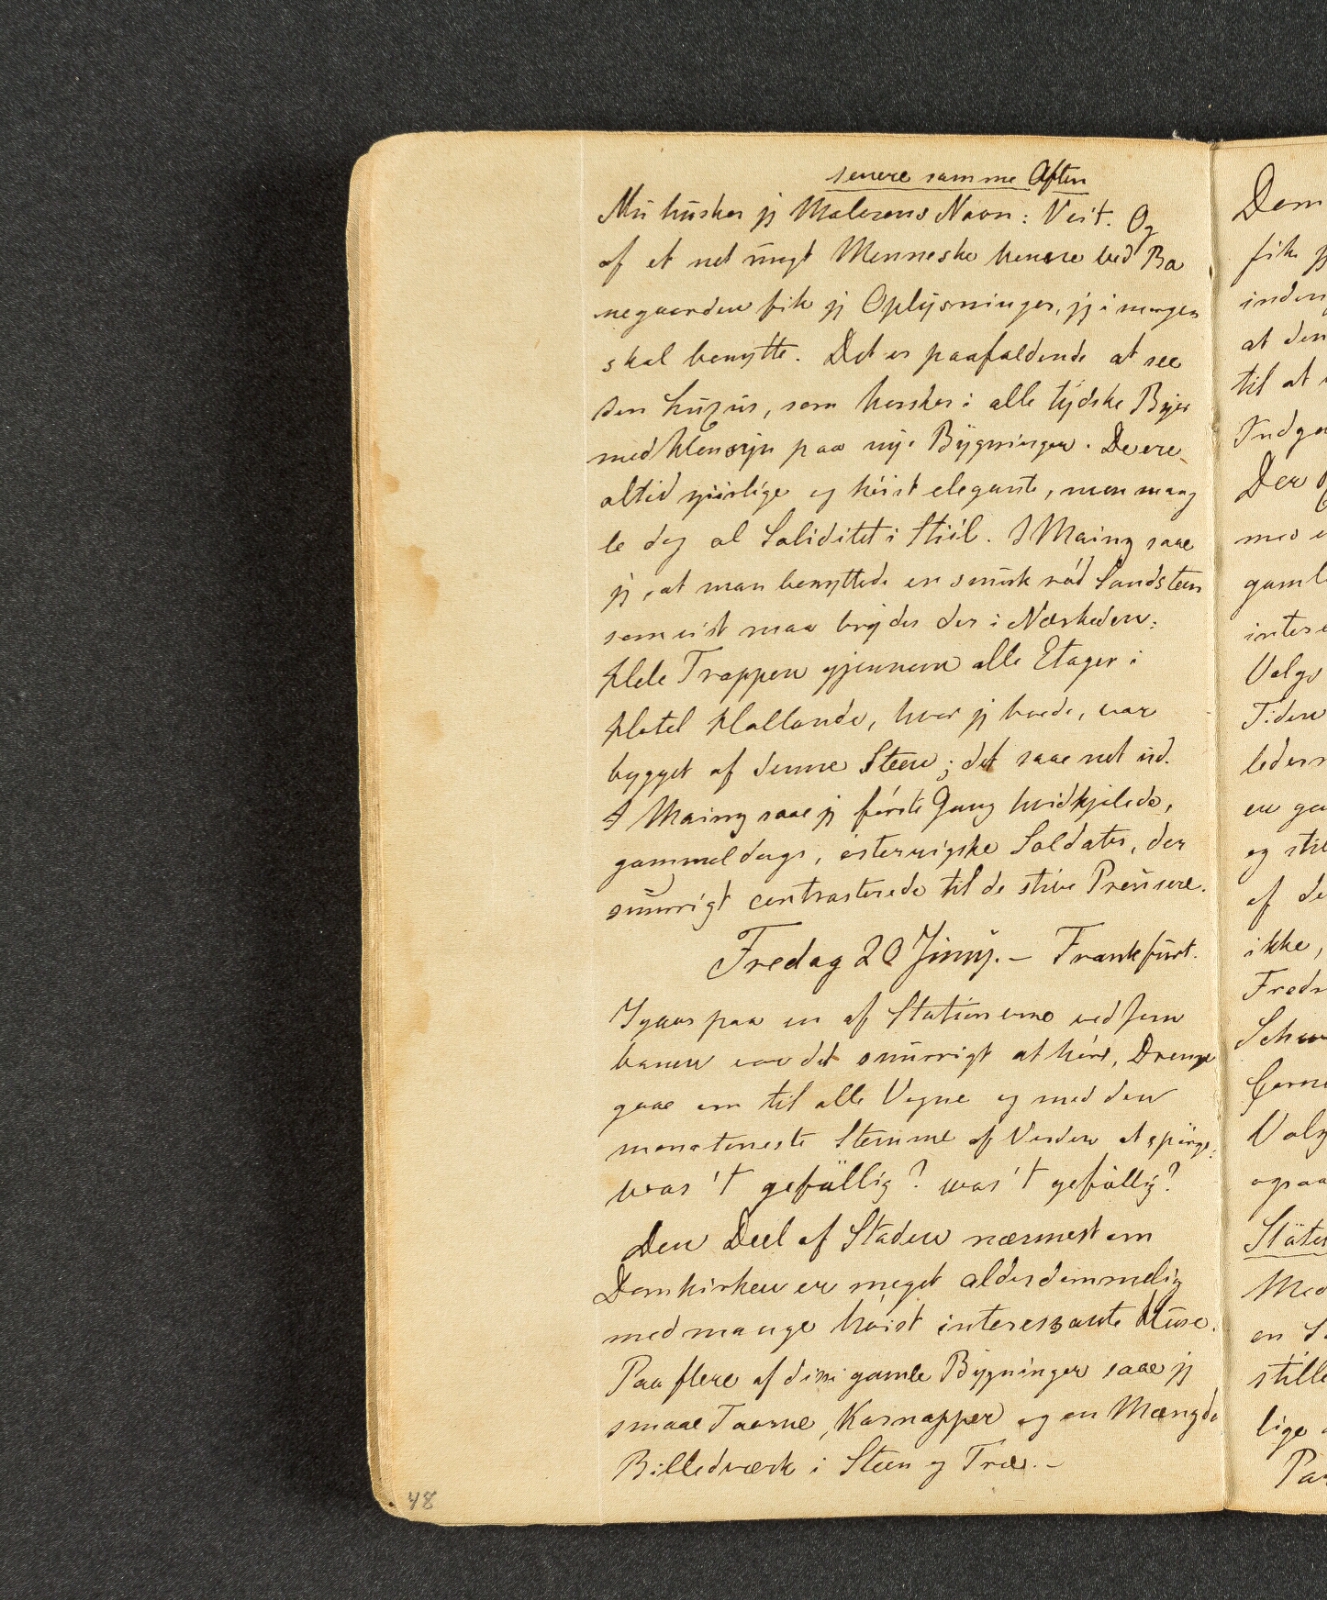 senere samme Aften
Nu husker jeg Malerens Navn: Veit. Og
af et net ungt Menneske henne ved Ba
negaarden fik jeg Oplysninger, jeg i morgen
skal benytte. Det er paafaldende at see
den Luxus, som hersker i alle tydske Byer
med Hensyn paa nye Bygninger. De ere
altid ziirlige og höist elegante, men mang
le dog al Soliditet i Stiil. I Mainz saae
jeg, at man benyttede en smuk röd Sandsteen
som vist maa brydes der i Nærheden:
Hele Trappen gjennem alle Etager i
Hotel Hollande, hvor jeg boede, var
bygget af denne Steen; det saae net ud.
I Mainz saae jeg förste Gang hvidkjolede,
gammeldags, österrigske Soldater, der
snurrigt contrasterede til de stive Preusere.
Fredag 20 Juny. – Frankfurt.
Igaar paa en af Stationerne ved Jern
banen var det snurrigt at höre, Drenge
gaae om til alle Vogne og med den
monotoneste Stemme af Verden at spörge:
was 't gefällig? was 't gefällig?
Den Deel af Staden nærmest om
Domkirken er meget alderdommelig
med mange höist interessante Huse.
Paa flere af disse gamle Bygninger saae jeg
smaae Taarne, Karnapper og en Mængde
Billedværk i Steen og Træ. –
48
Dom
fik jeg
inden
at den
til at
Indga
Der o
med e
gaml
inter
Valg
Tiden
leder
en ga
og stil
af de
ikke,
Fred
Schw
Corn
Valg
ogsaa
Städe
Med
en S
stille
lige
Paa